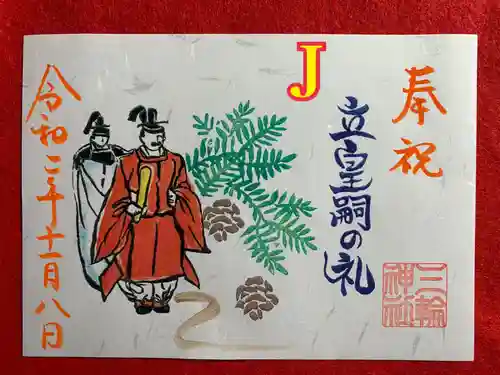 奉祝
J
立皇嗣の礼
三輪神社
令和二年十一月八日